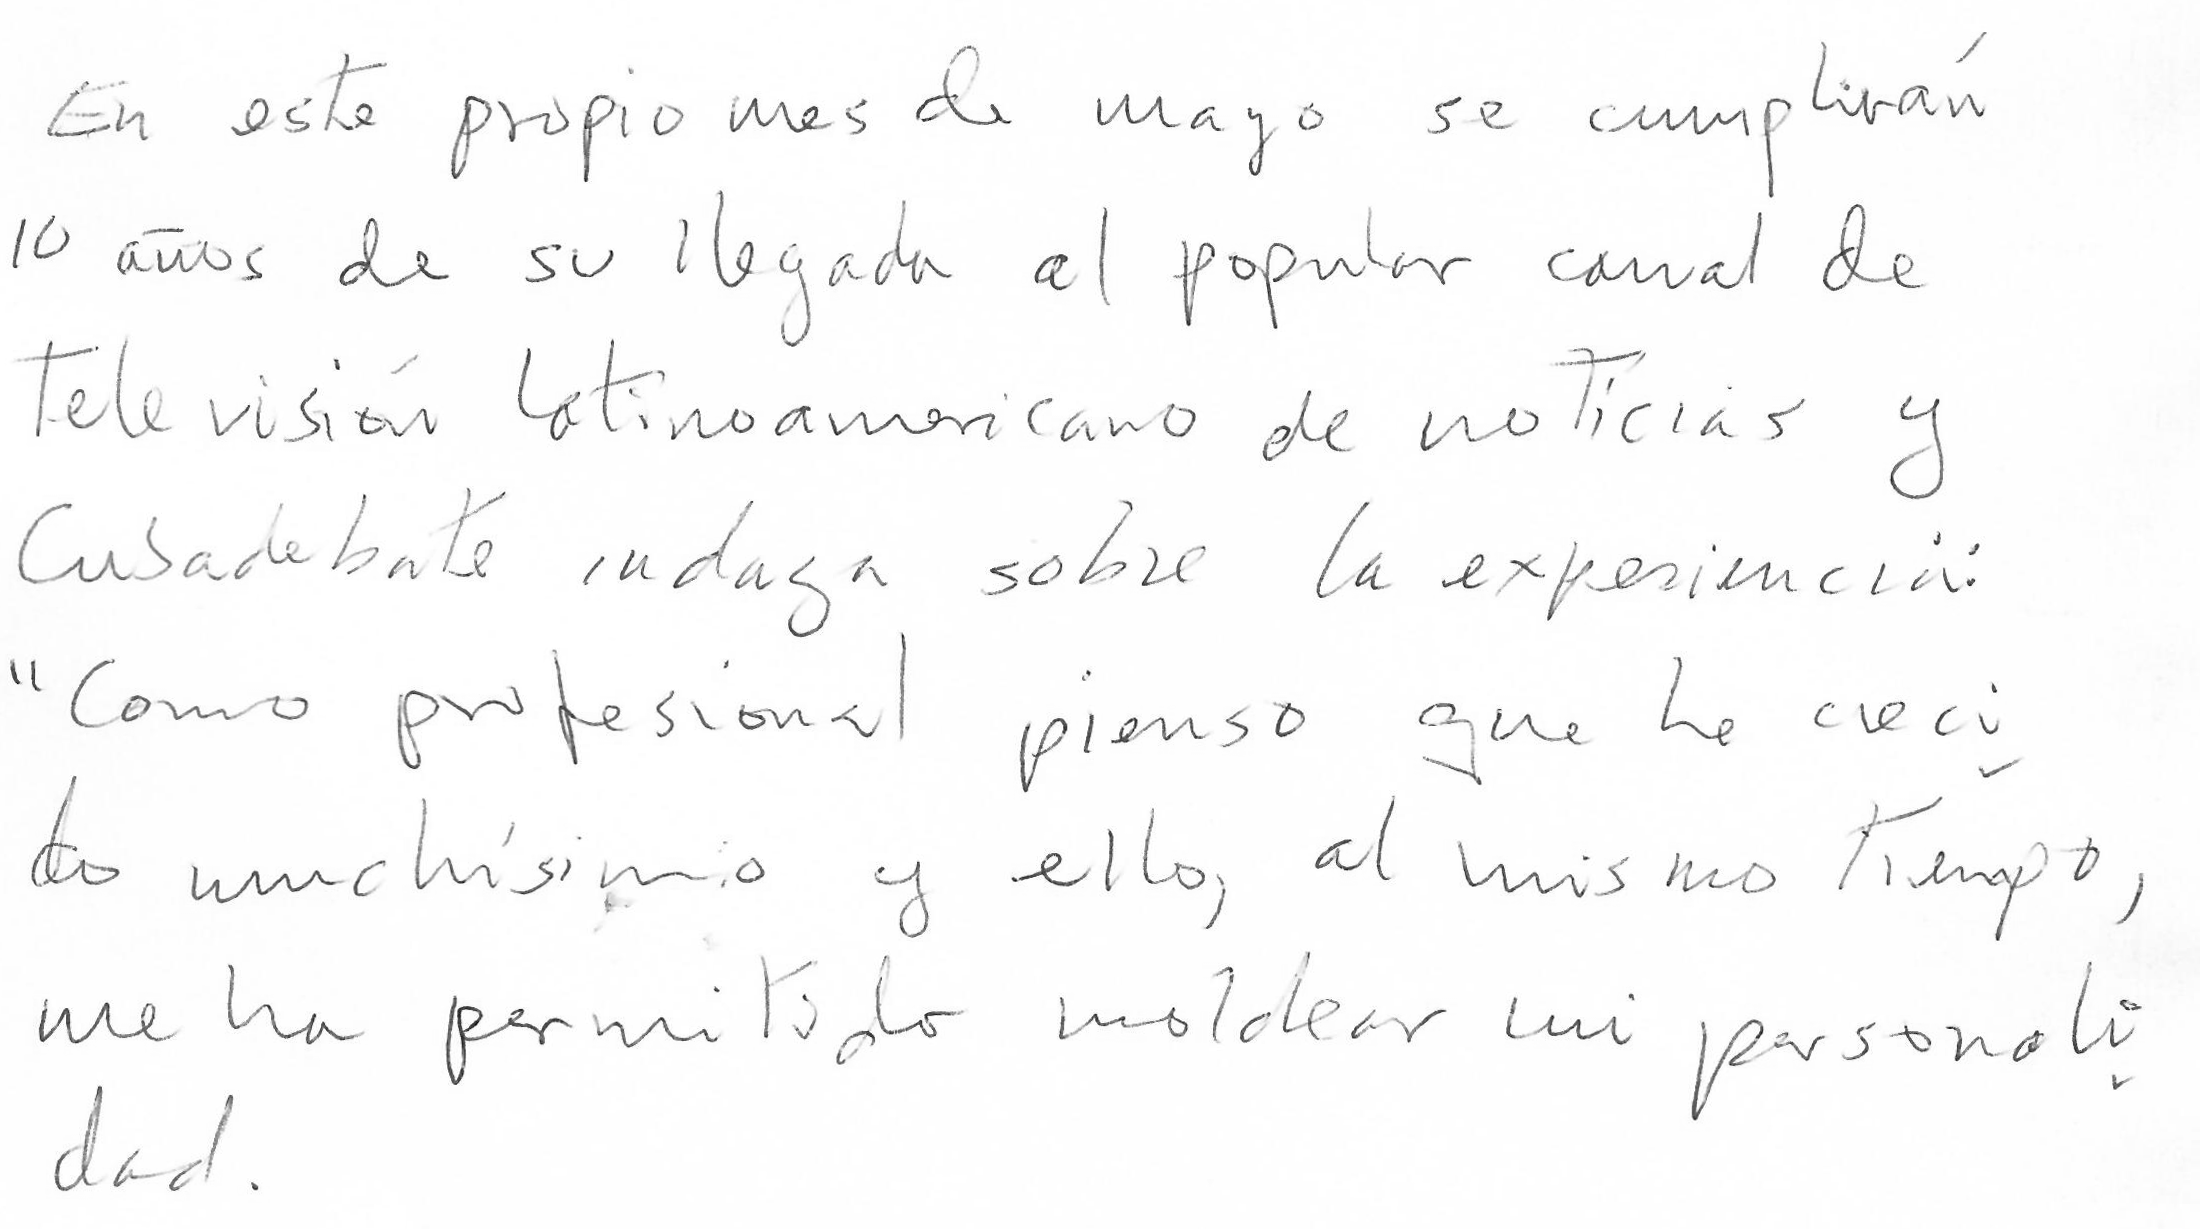 En este propio mes de mayo se cumplirán
10 años de su llegada al popular canal de
televisión latinoamericano de noticias y
Cubadebate indaga sobre la experiencia:
"Como profesional pienso que he creci
do muchísimo y ello, al mismo tiempo,
me ha permitido moldear mi personali
dad.